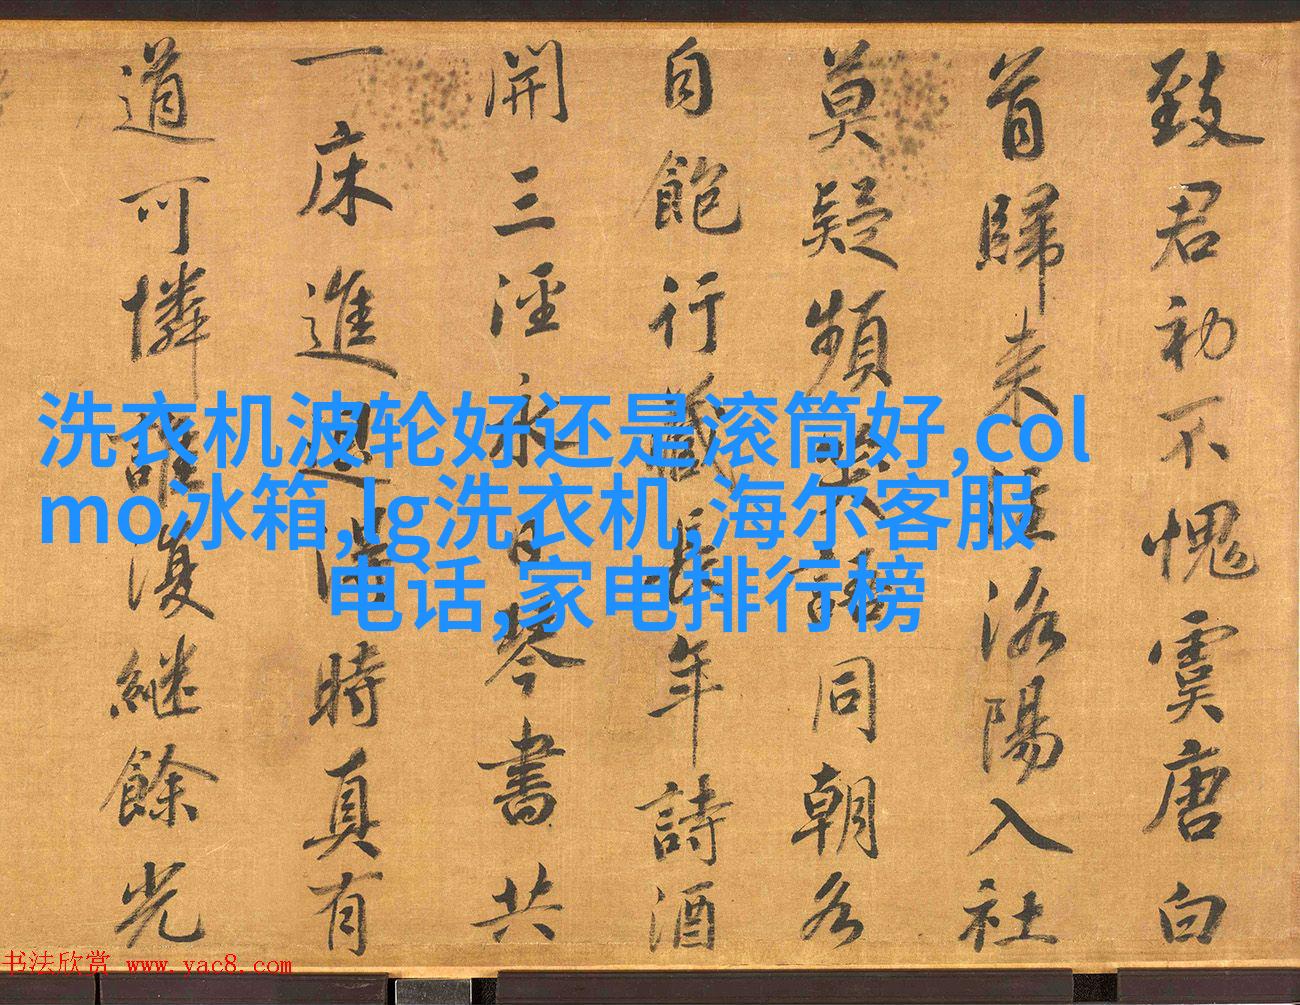 致君初不愧虞唐白
首歸来住洛陽入社
莫疑頻笑語同朝各
自飽行藏長年詩酒
開三涇永日琴書共
一床進退得時真有
道可憐誰復繼餘光
洗衣机波轮好还是滚筒好,col
mo冰箱,lg洗衣机,海尔客服
电话,家电排行榜
书法欣赏 www.yac8.com